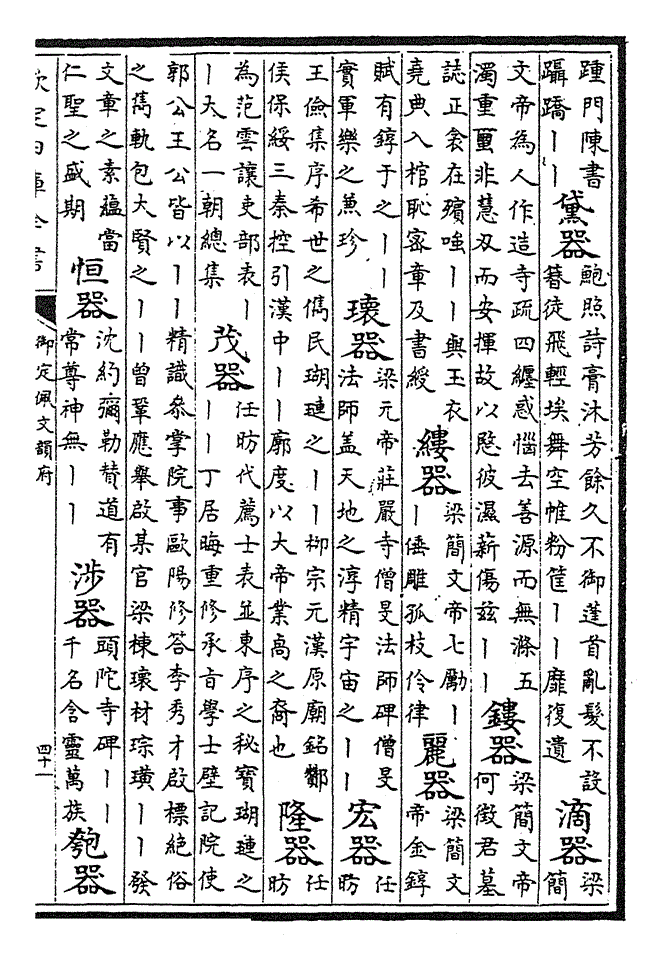 踵門陳書
躡蹻丨丨
黛器
鮑照詩膏沐芳餘久不御蓬首亂髮不設
簪徒飛輕埃舞空帷粉筐丨丨靡復遺
滴器
梁
簡
文帝為人作造寺疏四纒惑惱去善源而無滌五
濁重壐非慧刄而安揮故以愍彼濕薪傷兹丨丨
鏤器
梁簡文帝
何徵君墓
誌正衾在殯啀丨丨與玉衣
堯典入棺恥宻章及書綬
縷器
梁簡文帝七勵丨
丨倕雕孤枝伶律
麗器
梁簡文
帝金錞
賦有錞于之丨丨
實軍樂之兼珍
瓌器
梁元帝莊嚴寺僧旻法師碑僧旻
法師盖天地之淳精宇宙之丨丨
宏器
任
昉
王儉集序希世之儁民瑚璉之丨丨柳宗元漢原廟銘酇
侯保綏三秦控引漢中丨丨廓度以大帝業高之裔也
隆器
任
昉
為范雲讓吏部表丨
丨大名一朝總集
茂器
任昉代薦士表並東序之秘寳瑚璉之
丨丨丁居晦重修承㫖學士壁記院使
郭公王公皆以丨丨精識叅掌院事歐陽修答李秀才啟標絶俗
之雋軌包大賢之丨丨曾鞏應舉啟某官梁棟瓌材琮璜丨丨發
文章之素蘊當
仁聖之盛期
恒器
沈約彌勒賛道有
常尊神無丨丨
涉器
頭陀寺碑丨丨
千名含靈萬族
匏器
欽定四庫全書
御定佩文韻府
四十一